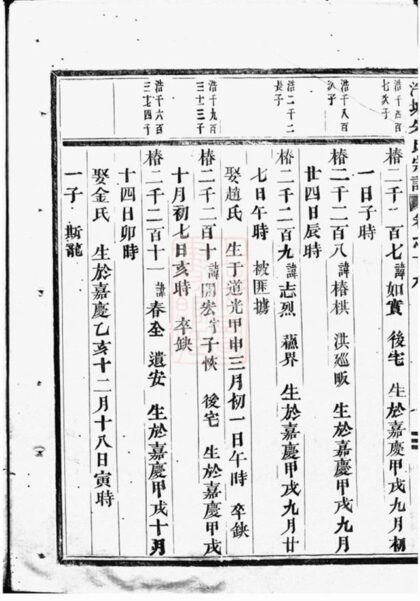 浩千四百
七次子
椿二千二百七 諱如寶 後宅 生於嘉慶甲戌九月初
一日子時
浩千八百
次子
椿二千二百八 諱椿棋 洪廵畈 生於嘉慶甲戌九月
廿四日辰時
浩二千二
長子
椿二千二百九 諱志烈 蘊界 生於嘉慶甲戌九月廿
七日午時 被匪擄
娶趙氏 生于道光甲申三月初一日午時 卒缺
浩千九百
三十三子
椿二千二百十 諱開宏 字子恢 後宅 生於嘉慶甲戌
十月初七日亥時 卒缺
浩千六百
三十四子
椿二千二百十一 諱春全 遺安 生於嘉慶甲戌十月
十四日卯時
娶金氏 生於嘉慶乙亥十二月十八日寅時
一子 斯龍